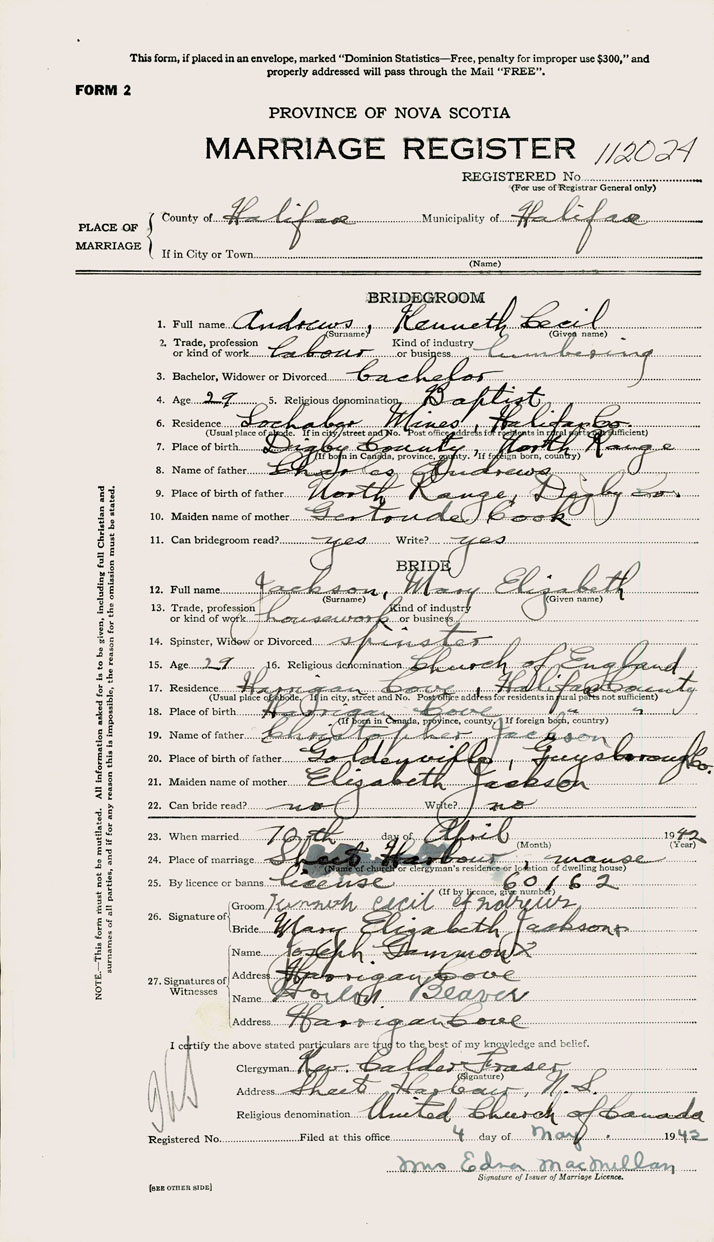 This form, if placed in an envelope, marked "Dominion Statistics—Free, penalty for improper use $300," and
properly addressed will pass through the Mail "FREE".
FORM 2
PROVINCE OF NOVA SCOTIA
MARRIAGE REGISTER 112024
REGISTERED No.
(For use of Registrar General only)
PLACE OF MARRIAGE
County of Halifax Municipality of Halifax
If in City or Town
(Name)
BRIDEGROOM
1. Full name Andrews, Kenneth Cecil
(Surname) (Given name)
2. Trade, profession or kind of work labour Kind of industry or business lumbering
3. Bachelor, Widower or Divorced bachelor
4. Age 29 5. Religious denomination Baptist
6. Residence Lochaber Mines, Halifax Co.
(Usual place of abode. If in city, street and No. Post office address for residents in rural parts not sufficient)
7. Place of birth Digby County, North Range
(If born in Canada, province, county. If foreign born, country)
8. Name of father Charles Andrews
9. Place of birth of father North Range, Digby Co.
10. Maiden name of mother Gertrude Cook
11. Can bridegroom read? yes Write? yes
BRIDE
12. Full name Jackson, Mary Elizabeth
(Surname) (Given name)
13. Trade, profession or kind of work housework Kind of industry or business
14. Spinster, Widow or Divorced spinster
15. Age 29 16. Religious denomination Church of England
17. Residence Harrigan Cove, Halifax County
(Usual place of abode. If in city, street and No. Post office address for residents in rural parts not sufficient)
18. Place of birth Harrigan Cove " "
(If born in Canada, province, county. If foreign born, country)
19. Name of father Christopher Jackson
20. Place of birth of father Goldenville, Guysborough Co.
21. Maiden name of mother Elizabeth Jackson
22. Can bride read? no Write? no
23. When married 10th day of April 1942
(Month) (Year)
24. Place of marriage Sheet Harbour, manse
(Name of church or clergyman's residence or location of dwelling house)
25. By licence or banns license 60162
(If by licence, give number)
26. Signature of Groom Kenneth Cecil Andrews
Bride Mary Elizabeth Jackson
27. Signatures of Witnesses
Name Joseph Gammon X
Address Harrigan Cove
Name Beaver
Address Harrigan Cove
I certify the above stated particulars are true to the best of my knowledge and belief.
Clergyman Rev. Calder Fraser
(Signature)
Address Sheet Harbour, N.S.
Religious denomination United Church of Canada
Registered No. Filed at this office 4 day of May 1942
Mrs Edna MacMillan
Signature of Issuer of Marriage Licence.
[SEE OTHER SIDE]
NOTE.—This form must not be mutilated. All information asked for is to be given, including full Christian and
surnames of all parties, and if for any reason this is impossible, the reason for the omission must be stated.